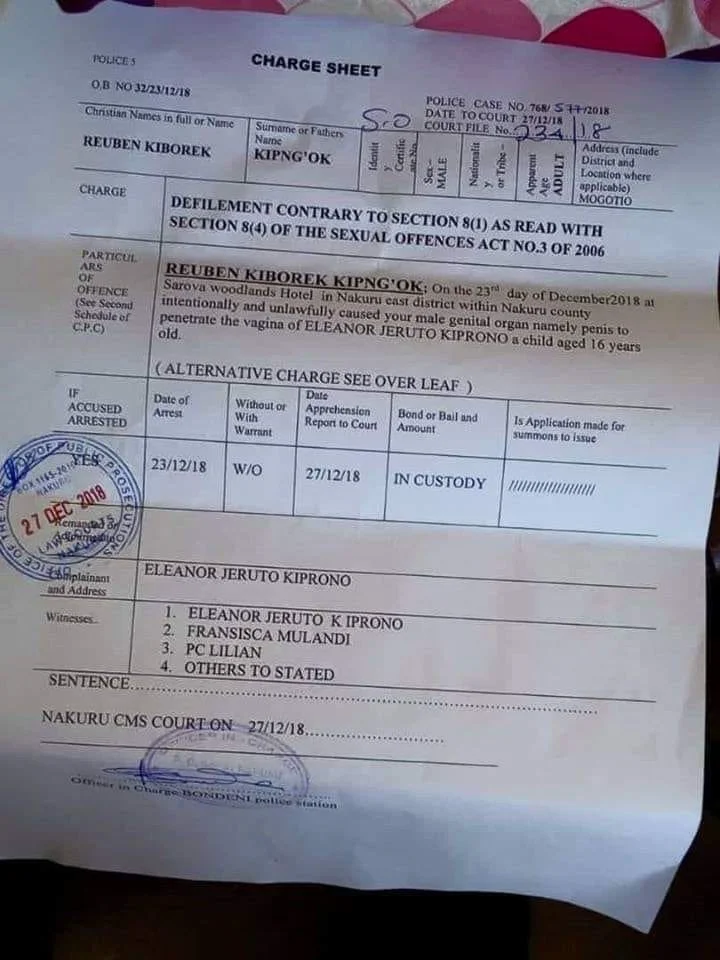 POLICE 5
CHARGE SHEET
O.B NO 32/23/12/18
POLICE CASE NO. 768/577/2018
DATE TO COURT 27/12/18
COURT FILE No. 234/18
S.O
Christian Names in full or Name
REUBEN KIBOREK
Surname or Fathers
Name
KIPNG'OK
Identit
y
Certific
ate No.
Sex –
MALE
Nationalit
y
or Tribe –
Apparent
Age
ADULT
Address (include
District and
Location where
applicable)
MOGOTIO
CHARGE
DEFILEMENT CONTRARY TO SECTION 8(1) AS READ WITH
SECTION 8(4) OF THE SEXUAL OFFENCES ACT NO.3 OF 2006
PARTICUL
ARS
OF
OFFENCE
(See Second
Schedule of
C.P.C)
REUBEN KIBOREK KIPNG'OK; On the 23rd day of December2018 at
Sarova woodlands Hotel in Nakuru east district within Nakuru county
intentionally and unlawfully caused your male genital organ namely penis to
penetrate the vagina of ELEANOR JERUTO KIPRONO a child aged 16 years
old.
( ALTERNATIVE CHARGE SEE OVER LEAF )
IF
ACCUSED
ARRESTED
Date of
Arrest
Without or
With
Warrant
Date
Apprehension
Report to Court
Bond or Bail and
Amount
Is Application made for
summons to issue
YES
23/12/18
W/O
27/12/18
IN CUSTODY
////////////////////
OFFICE OF THE DIRECTOR OF PUBLIC PROSECUTIONS
NAKURU
27 DEC 2018
LAW COURTS
NAKURU
Remanded or
Complainant
and Address
ELEANOR JERUTO KIPRONO
Witnesses..
1. ELEANOR JERUTO K IPRONO
2. FRANSISCA MULANDI
3. PC LILIAN
4. OTHERS TO STATED
SENTENCE
NAKURU CMS COURT ON 27/12/18
OFFICER IN - CHARGE
Officer in Charge BONDENI police station